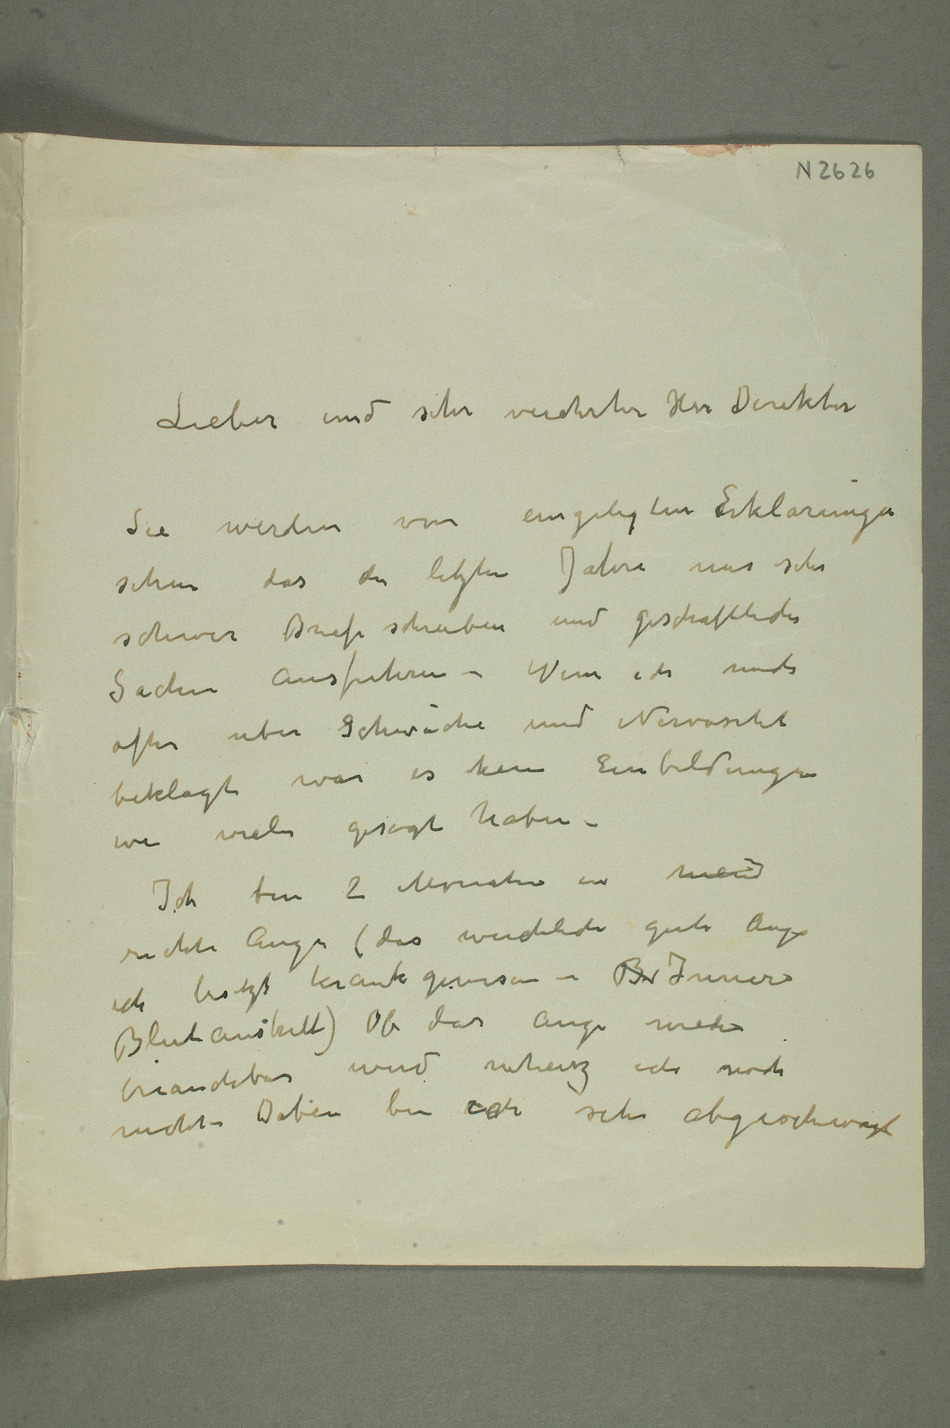 N 2626
Lieber und sehr verehrter Herr Direktor
Sie werden von eingelegten Erklärungen
sehen das die letzten Jahre mir sehr
schwer Briefe schreiben und geschaftliche
Sachen ausfuhren – Wenn ich mich
ofter uber Schwäche und Nervositet
beklagte war es kein Einbildungen
wie viele gesagt haben –
Ich bin 2 Monate in mein
rechte Auge (das wirchliche gute Auge
ich besitzt krank gewesen – Br Innere
Blutaustritt) Ob das Auge wieder
brauchbar wird weis ich noch
nicht – Dabei bin ich sehr abgeschwagt